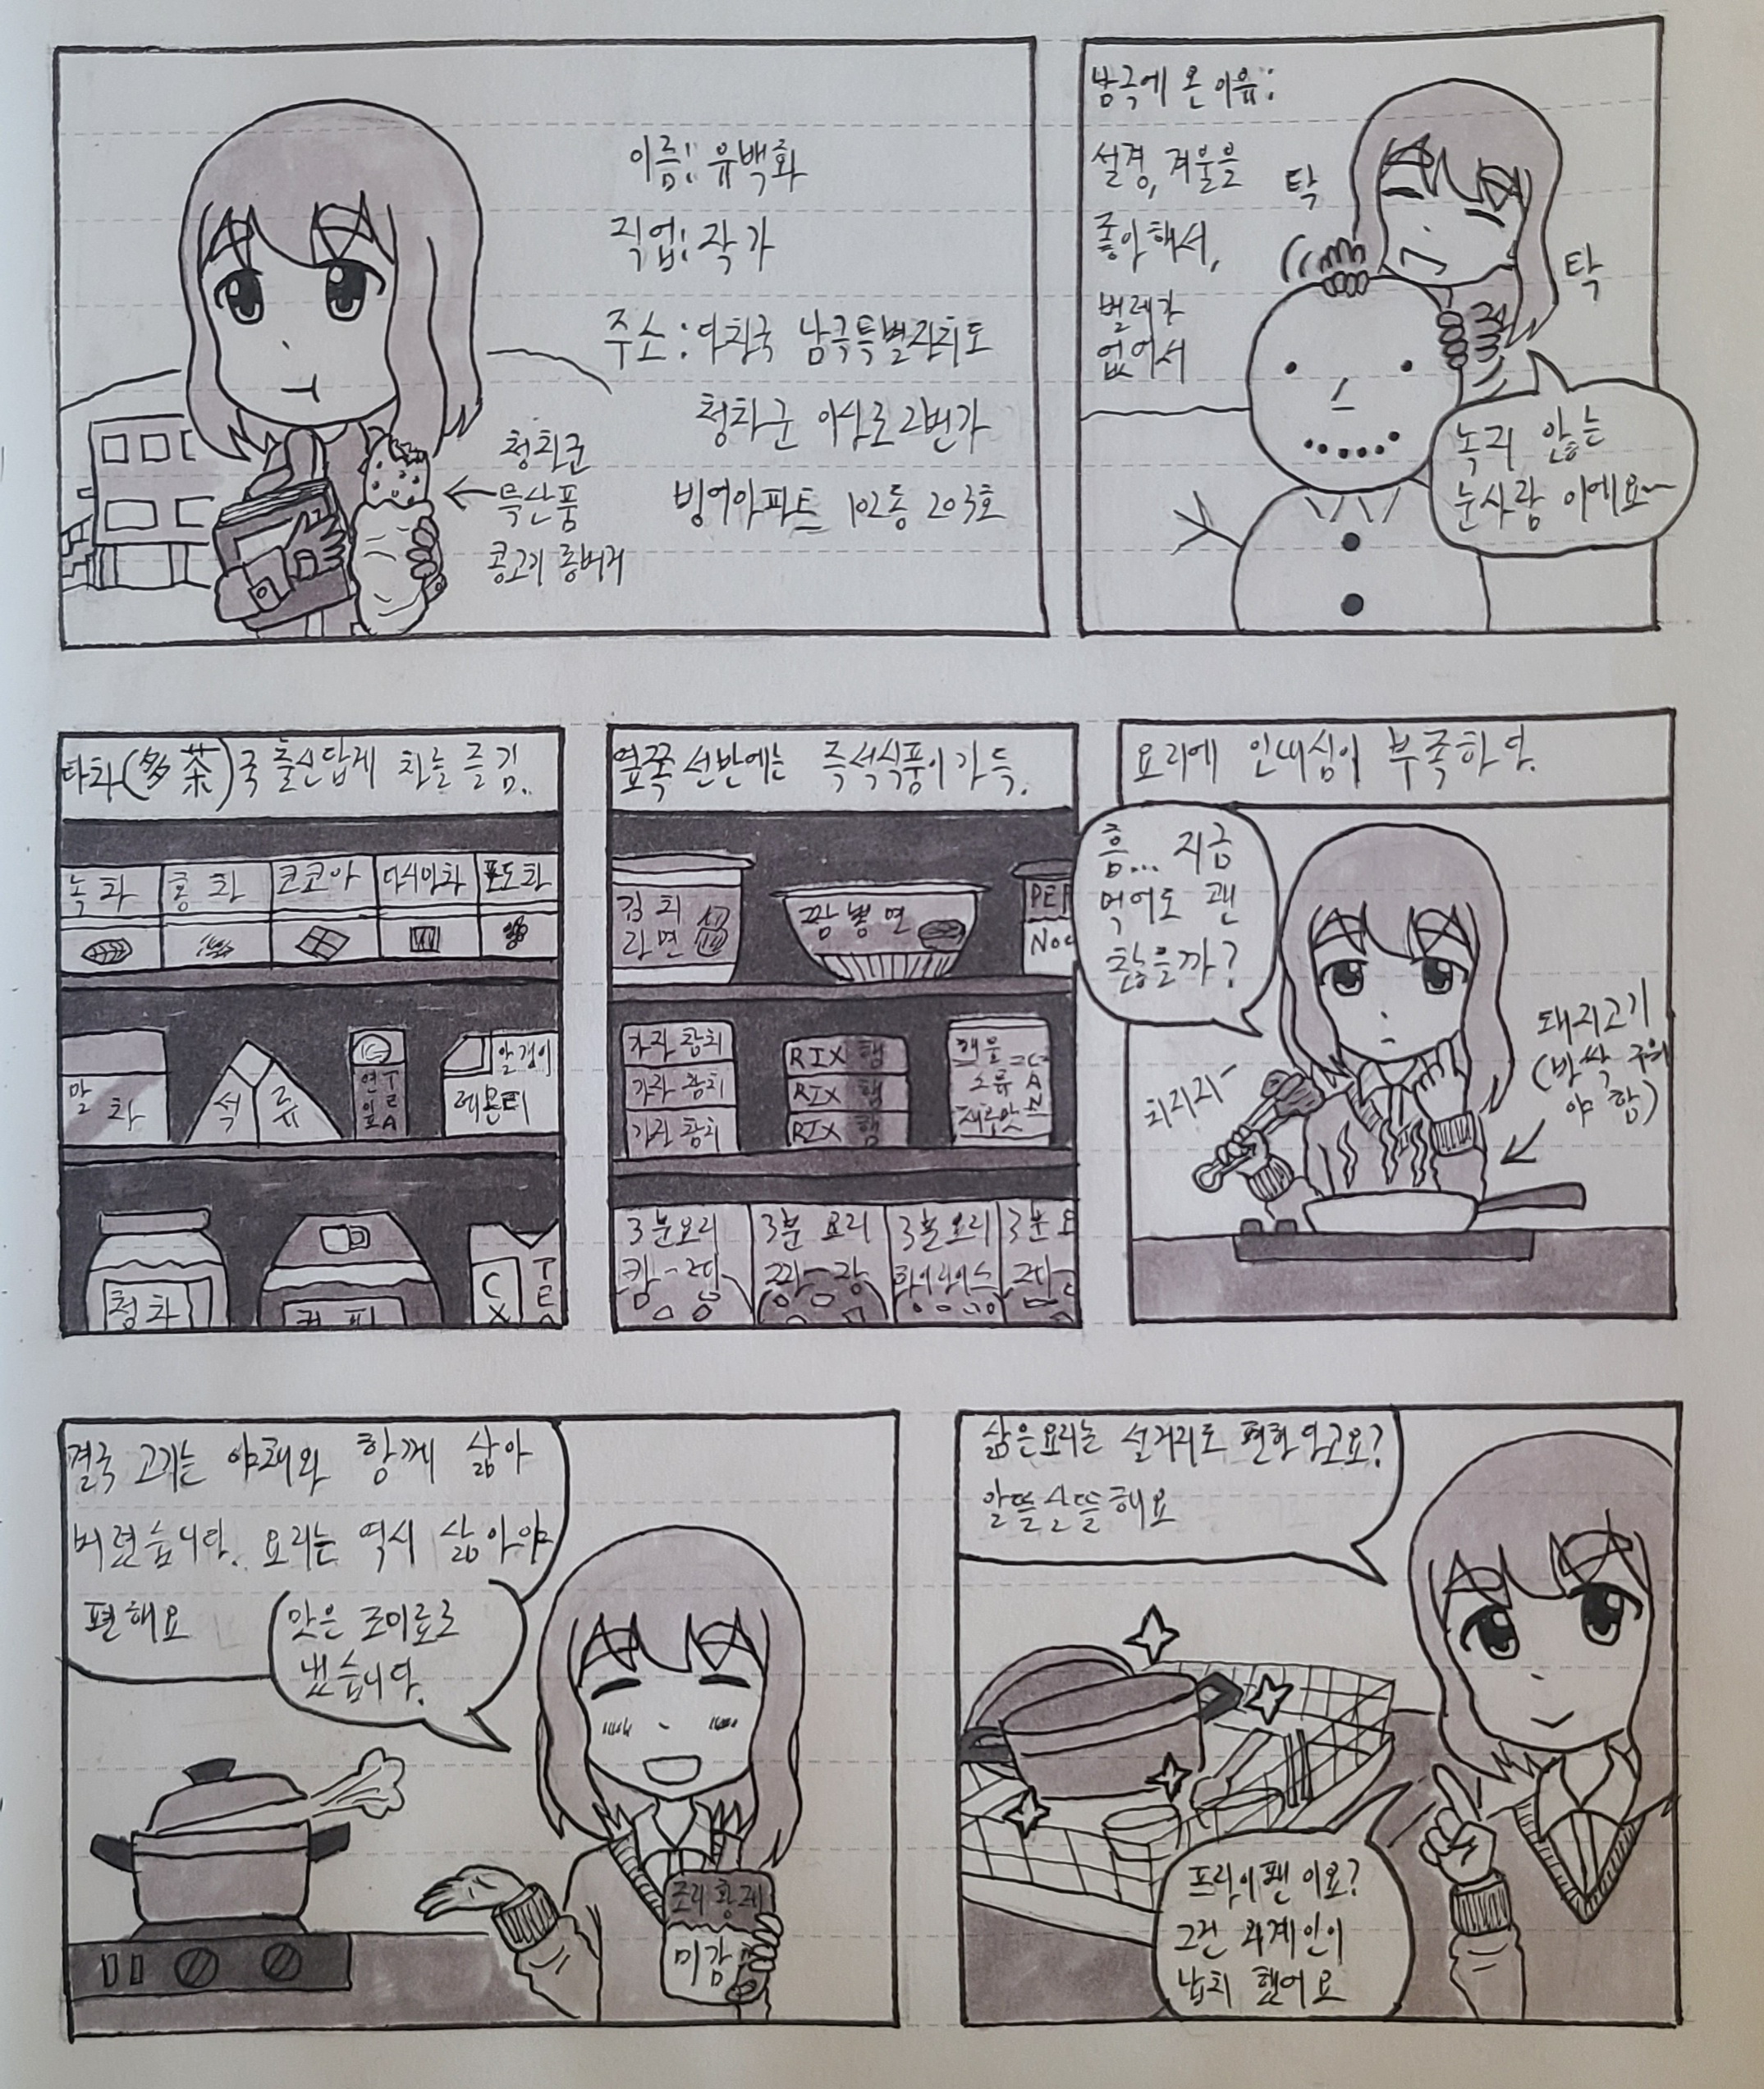 이름: 유백화
직업: 작가
주소: 다차국 남극특별자치도
청차군 아삼로 2번가
빙어아파트 102동 203호
청차군
특산품
콩고기 롱버거
남극에 온 이유:
설경, 겨울을
좋아해서,
벌레가
없어서
탁
탁
녹지 않는
눈사람 이에요~
다차(多茶)국 출신답게 차를 즐김.
녹차
홍차
코코아
다시마차
포도차
말차
석류
연잎
TEA
알갱이
레몬티
청차
커피
CX
TE
옆쪽 선반에는 즉석식품이 가득.
김치
라면
짬뽕면
PEP
Noo
가자 참치
가자 참치
가자 참치
RIX 햄
RIX 햄
RIX 햄
해물
소류
CAN
3분요리
3분 요리
3분요리
3분 요
짜~장
하이라이스
요리에 인내심이 부족하다.
흠... 지금
먹어도 괜
찮을까?
치지지~
돼지고기
(바싹 구워
야 함)
결국 고기는 야채와 함께 삶아
버렸습니다. 요리는 역시 삶아야
편해요
맛은 조미료로
냈습니다.
미감
삶은요리는 설거지도 편하답고요?
알뜰살뜰해요
프라이팬 이요?
그건 외계인이
납치 했어요